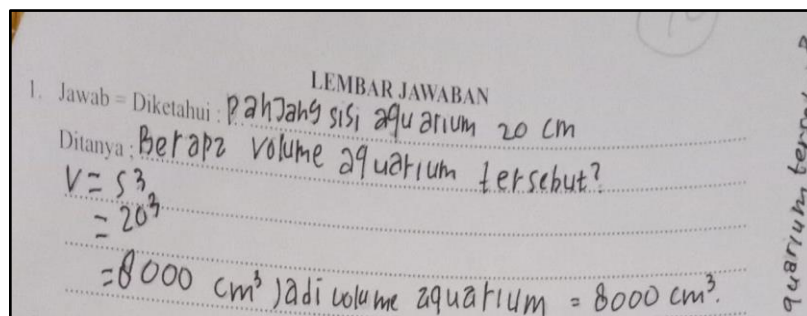 LEMBAR JAWABAN
1. Jawab = Diketahui : Panjang sisi aquarium 20 cm
Ditanya : Berapa volume aquarium tersebut?
V = s³
= 20³
= 8000 cm³ Jadi volume aquarium = 8000 cm³.
quarium